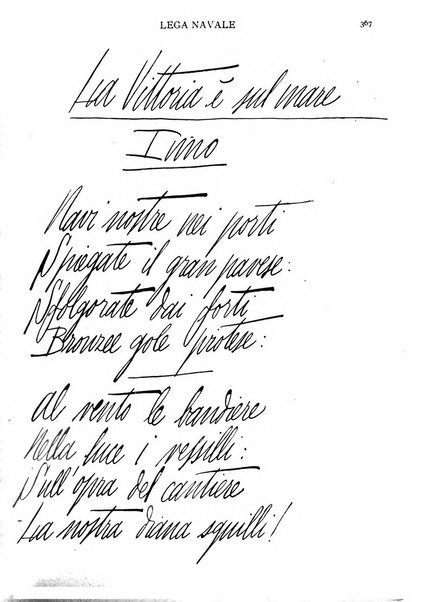 LEGA NAVALE 367
La Vittoria è sul mare
Inno
Navi nostre nei porti
Spiegate il gran pavese:
Sfolgorate dai forti
Bronzee gole protese:
Al vento le bandiere
Nella luce i vessilli:
Sull'opra del cantiere
La nostra diana squilli!